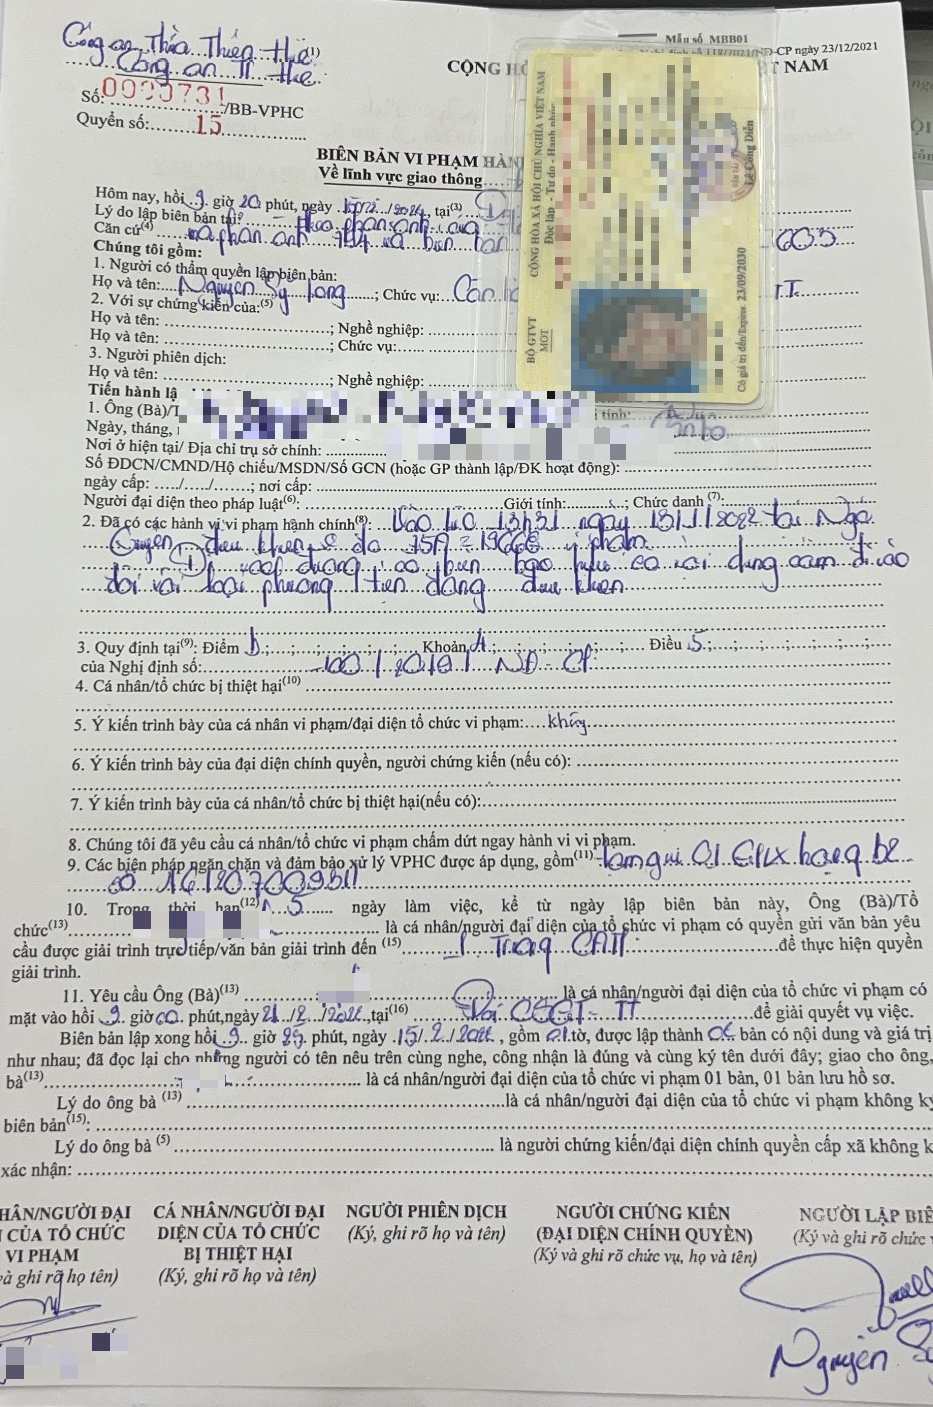 Công an Thừa Thiên Huế (1)
Công an TP Huế
Mẫu số MBB01
/NĐ-CP ngày 23/12/2021
CỘNG HÒ
T NAM
Số: 0090731 /BB-VPHC
Quyển số: 15
BIÊN BẢN VI PHẠM HÀN
Về lĩnh vực giao thông
Hôm nay, hồi 9 giờ 20 phút, ngày , tại(3)
Lý do lập biên bản tại: theo phản ánh
Căn cứ(4) và phản ánh và biên bản 003
Chúng tôi gồm:
1. Người có thẩm quyền lập biên bản:
Họ và tên: Nguyễn Sỹ Long ; Chức vụ: Cán bộ T.T.
2. Với sự chứng kiến của:(5)
Họ và tên: ; Nghề nghiệp:
Họ và tên: ; Chức vụ:
3. Người phiên dịch:
Họ và tên: ; Nghề nghiệp:
Tiến hành lậ
1. Ông (Bà)/T i tính:
Ngày, tháng,
Nơi ở hiện tại/ Địa chỉ trụ sở chính:
Số ĐDCN/CMND/Hộ chiếu/MSDN/Số GCN (hoặc GP thành lập/ĐK hoạt động):
ngày cấp: ..../..../......; nơi cấp:
Người đại diện theo pháp luật(6): Giới tính: ; Chức danh (7):
2. Đã có các hành vi vi phạm hành chính(8): Vào lúc 13h31 ngày 13/11/2022 tại Ngã
Quyền điều khiển xe ô tô 75A - 19666 vi phạm
(1) đường có biển báo hiệu có nội dung cấm đi vào
đối với loại phương tiện đang điều khiển
3. Quy định tại(9): Điểm b ;....; Khoản 4 ;....; Điều 5 ;....;
của Nghị định số: 100/2019/NĐ-CP.
4. Cá nhân/tổ chức bị thiệt hại(10)
5. Ý kiến trình bày của cá nhân vi phạm/đại diện tổ chức vi phạm: không
6. Ý kiến trình bày của đại diện chính quyền, người chứng kiến (nếu có):
7. Ý kiến trình bày của cá nhân/tổ chức bị thiệt hại(nếu có):
8. Chúng tôi đã yêu cầu cá nhân/tổ chức vi phạm chấm dứt ngay hành vi vi phạm.
9. Các biện pháp ngăn chặn và đảm bảo xử lý VPHC được áp dụng, gồm(11) tạm giữ 01 GPLX hạng B2
10. Trong thời hạn(12) 5 ngày làm việc, kể từ ngày lập biên bản này, Ông (Bà)/Tổ
chức(13) là cá nhân/người đại diện của tổ chức vi phạm có quyền gửi văn bản yêu
cầu được giải trình trực tiếp/văn bản giải trình đến (15) để thực hiện quyền
giải trình.
11. Yêu cầu Ông (Bà)(13) là cá nhân/người đại diện của tổ chức vi phạm có
mặt vào hồi 9 giờ 00 phút, ngày 21/2/2024, tại(16) Đội CSGT-TT để giải quyết vụ việc.
Biên bản lập xong hồi 9 giờ phút, ngày 15/2/2024, gồm 01 tờ, được lập thành 02 bản có nội dung và giá trị
như nhau; đã đọc lại cho những người có tên nêu trên cùng nghe, công nhận là đúng và cùng ký tên dưới đây; giao cho ông,
bà(13) là cá nhân/người đại diện của tổ chức vi phạm 01 bản, 01 bản lưu hồ sơ.
Lý do ông bà (13) là cá nhân/người đại diện của tổ chức vi phạm không ký
biên bản(15):
Lý do ông bà (5) là người chứng kiến/đại diện chính quyền cấp xã không k
xác nhận:
HÂN/NGƯỜI ĐẠI
CỦA TỔ CHỨC
VI PHẠM
và ghi rõ họ tên)
CÁ NHÂN/NGƯỜI ĐẠI
DIỆN CỦA TỔ CHỨC
BỊ THIỆT HẠI
(Ký, ghi rõ họ và tên)
NGƯỜI PHIÊN DỊCH
(Ký, ghi rõ họ và tên)
NGƯỜI CHỨNG KIẾN
(ĐẠI DIỆN CHÍNH QUYỀN)
(Ký và ghi rõ chức vụ, họ và tên)
NGƯỜI LẬP BIÊ
(Ký và ghi rõ chức v
Nguyễn Sỹ
CỘNG HÒA XÃ HỘI CHỦ NGHĨA VIỆT NAM
Độc lập - Tự do - Hạnh phúc
BỘ GTVT
MOT
Có giá trị đến/Expires: 23/09/2030
Lê Công Diễn